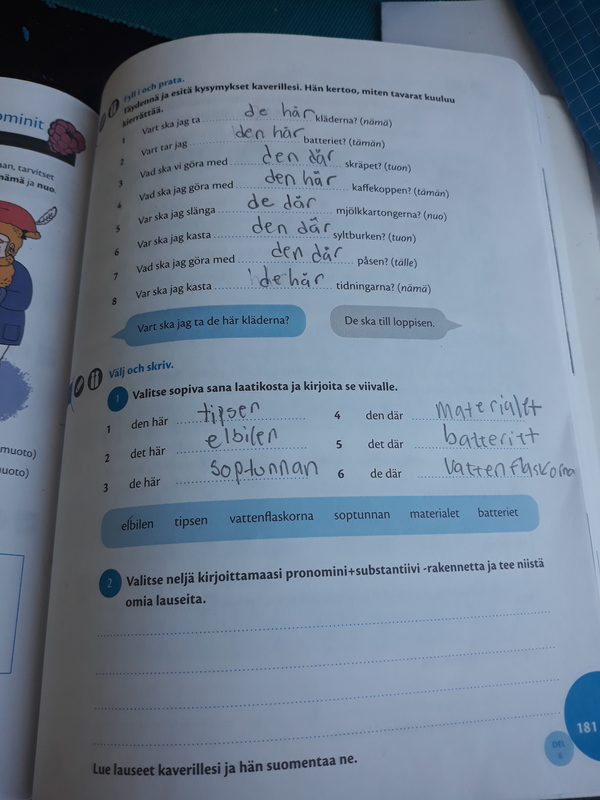 ominit
an, tarvitset
nämä ja nuo.
muoto)
uoto)
Fyll i och prata.
Täydennä ja esitä kysymykset kaverillesi. Hän kertoo, miten tavarat kuuluu
kierrättää.
1 Vart ska jag ta de här kläderna? (nämä)
2 Vart tar jag den här batteriet? (tämän)
3 Vad ska vi göra med den där skräpet? (tuon)
4 Vad ska jag göra med den här kaffekoppen? (tämän)
5 Var ska jag slänga de där mjölkkartongerna? (nuo)
6 Var ska jag kasta den där syltburken? (tuon)
7 Vad ska jag göra med den där påsen? (tälle)
8 Var ska jag kasta de här tidningarna? (nämä)
Vart ska jag ta de här kläderna?
De ska till loppisen.
Välj och skriv.
1 Valitse sopiva sana laatikosta ja kirjoita se viivalle.
1 den här tipsen
4 den där materialet
2 det här elbilen
5 det där batteriet
3 de här soptunnan
6 de där vattenflaskorna
elbilen tipsen vattenflaskorna soptunnan materialet batteriet
2 Valitse neljä kirjoittamaasi pronomini+substantiivi -rakennetta ja tee niistä
omia lauseita.
Lue lauseet kaverillesi ja hän suomentaa ne.
181
DEL
6